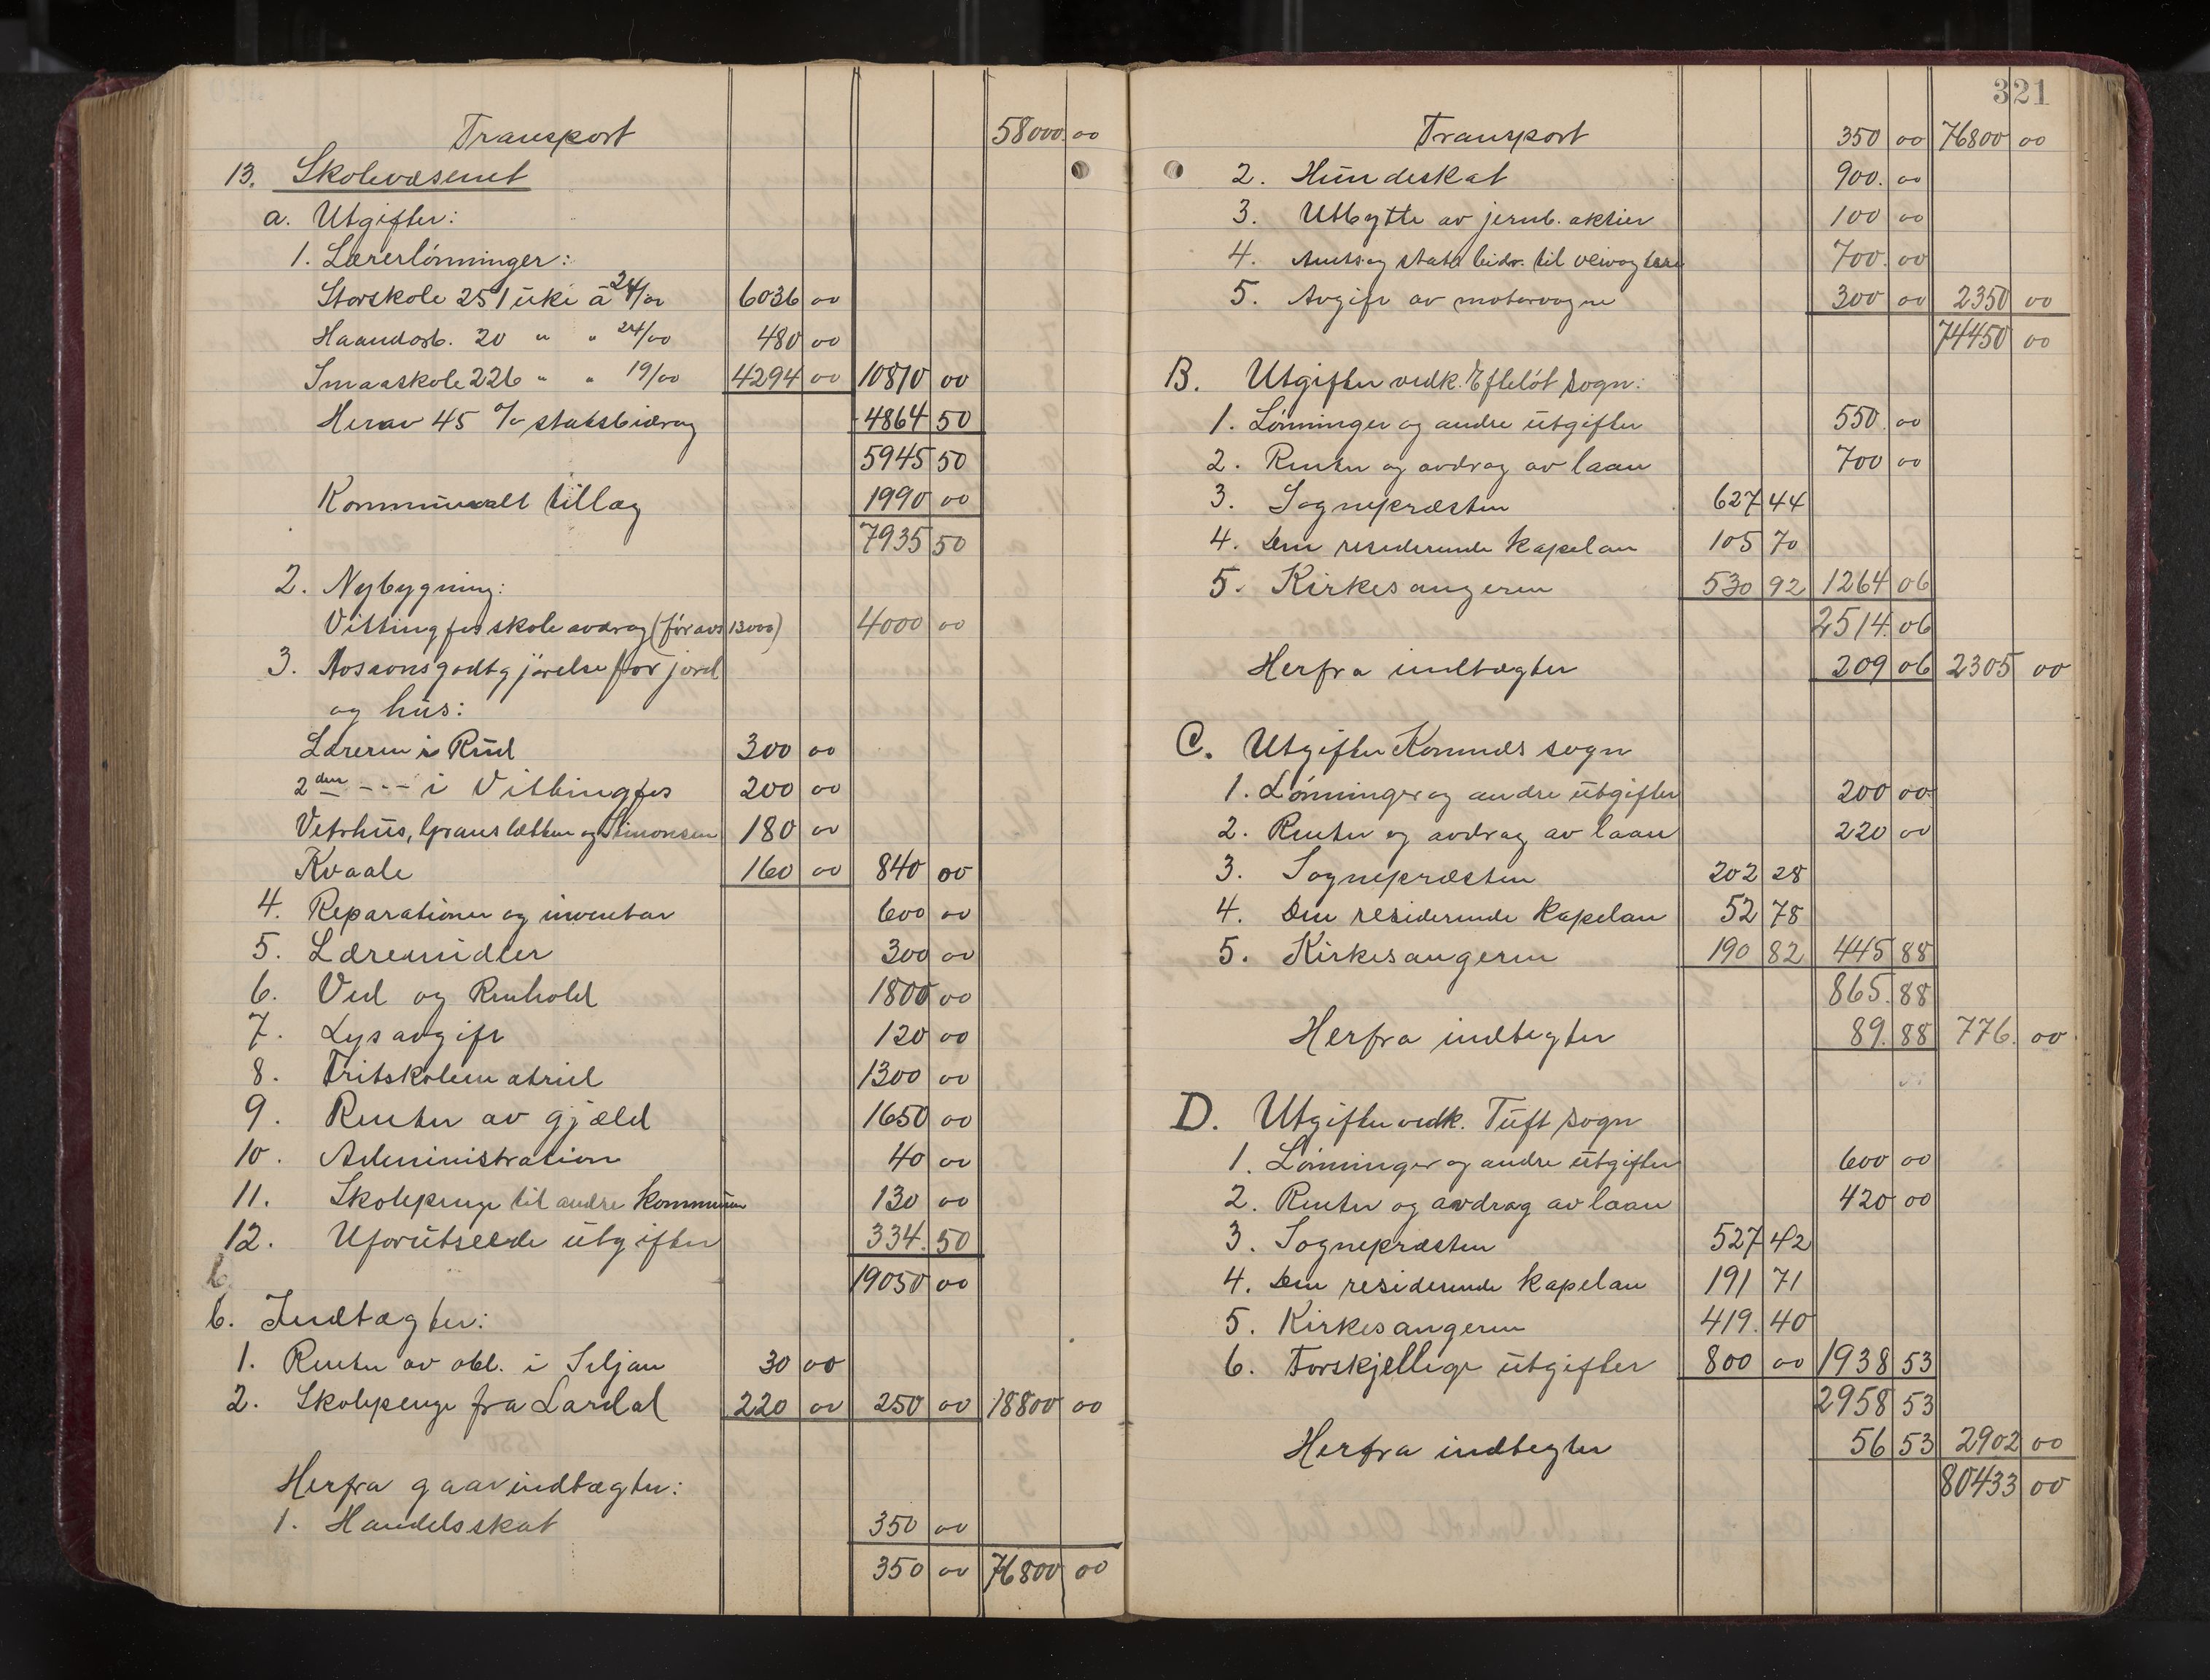 Transport 58000.00
13. Skolevæsenet
a. Utgifter:
1. Lærerlönninger:
Storskole 251 uke à 24/00 6036 00
Haandarb. 20 " " 24/00 480 00
Smaaskole 226 " " 19/00 4294 00 10810 00
Herav 45 % statsbidrag 4864 50
5945 50
Kommunalt tillæg 1990 00
7935 50
2. Nybygning:
Vittingfos skole avdrag (för avs 13000) 4000 00
3. godtgjörelse for jord
og hus:
Læreren i Rud 300 00
2den - - - i Vittingfos 200 00
Vetrhus, Granslætten og Simonsen 180 00
Kvaale 160 00 840 00
4. Reparationer og inventar 600 00
5. Læremidler 300 00
6. Ved og Renhold 1800 00
7. Lysavgift 120 00
8. Fritskolematriel 1300 00
9. Renter av gjæld 1650 00
10. Administration 40 00
11. Skolepenge til andre kommuner 130 00
12. Uforutseede utgifter 334.50
19050 00
b. Indtægter:
1. Renter av obl. i Siljan 30 00
2. Skolepenge fra Lardal 220 00 250 00 18800 00
Herfra gaar indtægter:
1. Handelsskat 350 00
350 00 76800 00
321
Transport 350 00 76800 00
2. Hundeskat 900. 00
3. Utbytte av jernb. aktier 100 00
4. Amts og stats bidr. til veivogtere 700. 00
5. Avgift av motorvogne 300 00 2350 00
74450 00
B. Utgifter vedk. Efteløt sogn:
1. Lönninger og andre utgifter 550. 00
2. Renter og avdrag av laan 700 00
3. Sognepræsten 627 44
4. Den residerende kapelan 105 70
5. Kirkesangeren 530 92 1264 06
2514.06
Herfra indtægter 209 06 2305 00
C. Utgifter Komnæs sogn
1. Lönninger og andre utgifter 200 00
2. Renter og avdrag av laan 220 00
3. Sognepræsten 202 28
4. Den residerende kapelan 52 78
5. Kirkesangeren 190 82 445 88
865.88
Herfra indtegter 89.88 776. 00
D. Utgifter vedk. Tuft sogn
1. Lönninger og andre utgifter 600 00
2. Renter og avdrag av laan 420 00
3. Sognepræsten 527 42
4. Den residerende kapelan 191 71
5. Kirkesangeren 419.40
6. Forskjellige utgifter 800 00 1938 53
2958 53
Herfra indtegter 56 53 2902 00
80433 00